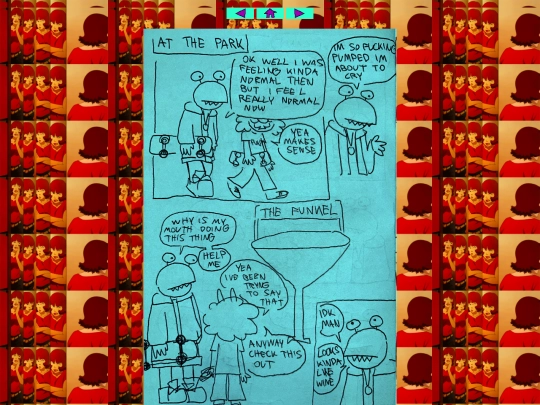 AT THE PARK
OK WELL I WAS
FEELING KINDA
NORMAL THEN
BUT I FEEL
REALLY NORMAL
NOW
YEA
MAKES
SENSE
IM SO FUCKING
PUMPED IM
ABOUT TO
CRY
WHY IS MY
MOUTH DOING
THIS THING
HELP
ME
THE FUNNEL
YEA
IVE BEEN
TRYING
TO SAY
THAT
ANYWAY
CHECK THIS
OUT
IDK
MAN
LOOKS
KINDA
LIKE
WINE